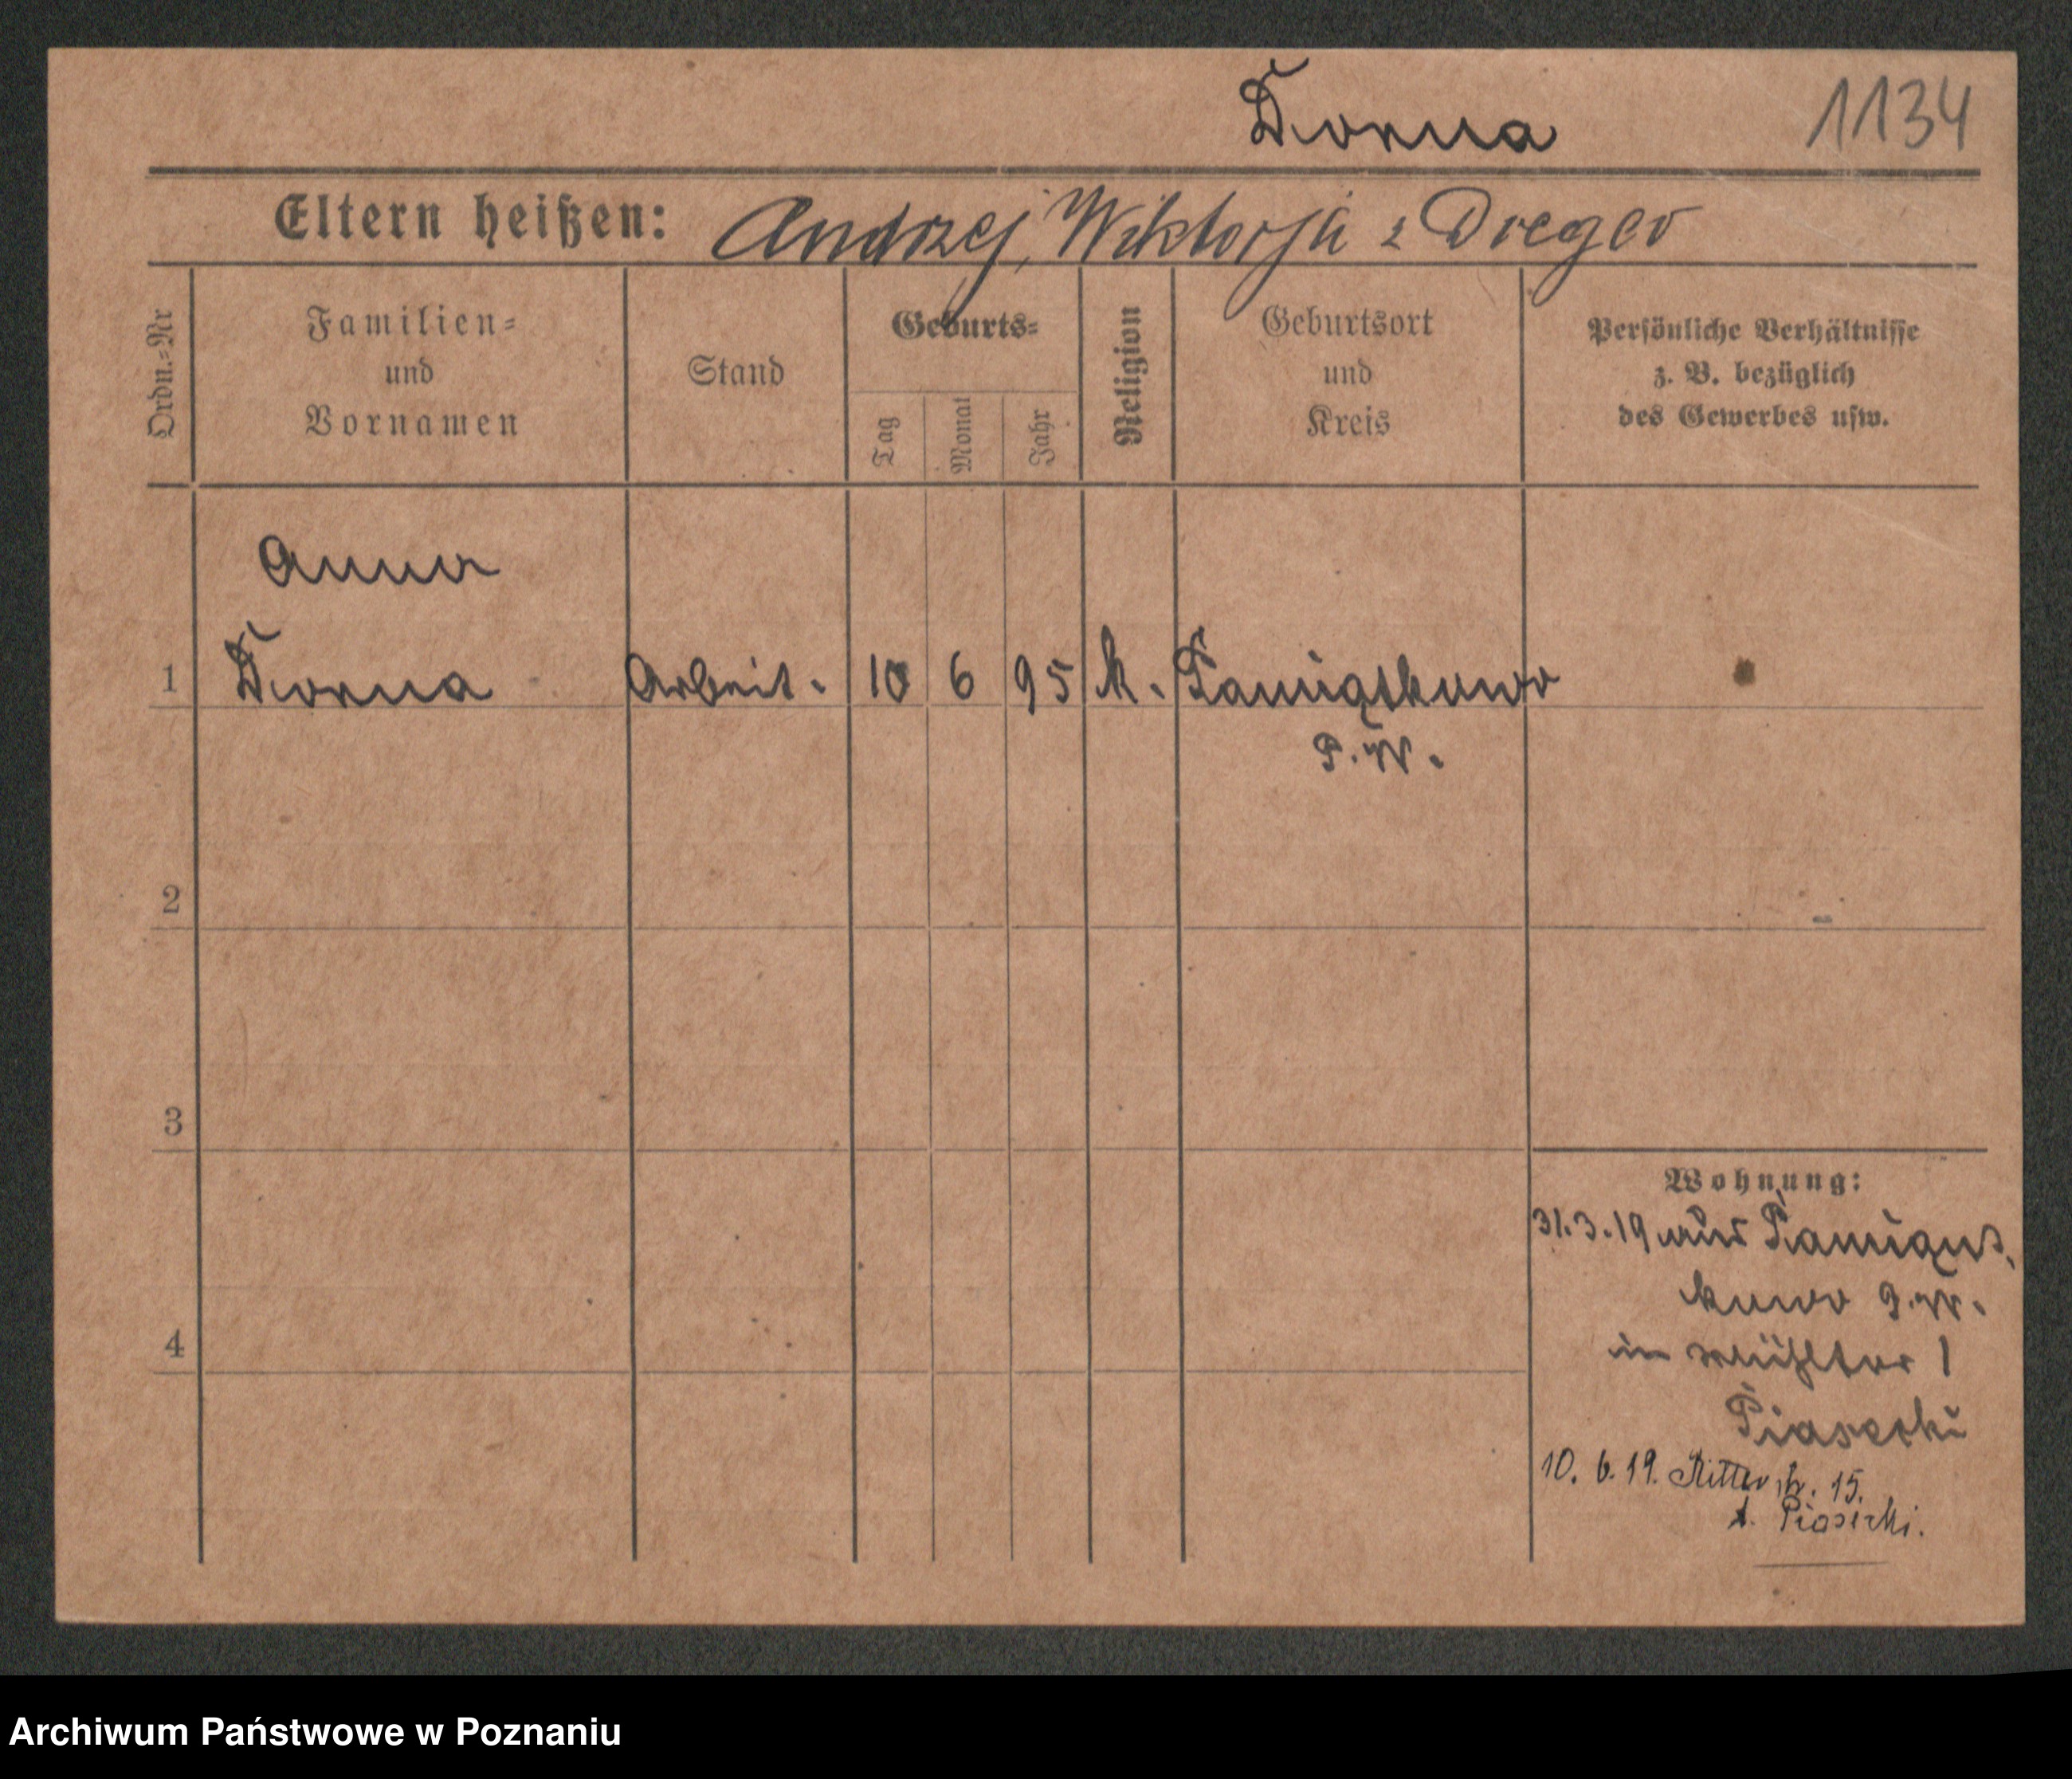 Dorna
1134
Eltern heißen: Andrzej, Wiktorja z Dreger
Ordn.-Nr
Familien-
und
Vornamen
Stand
Geburts-
Tag
Monat
Jahr
Religion
Geburtsort
und
Kreis
Persönliche Verhältnisse
z. B. bezüglich
des Gewerbes usw.
Anna
1 Dorna Arbeit. 10 6 95 k. Pamiątkowo
P. W.
2
3
Wohnung:
31.3.19 aus
kowo P. W.
4
in Mühltor 1
Piasecki
10. 6. 19. Ritterstr. 15.
b. Piasecki.
Archiwum Państwowe w Poznaniu